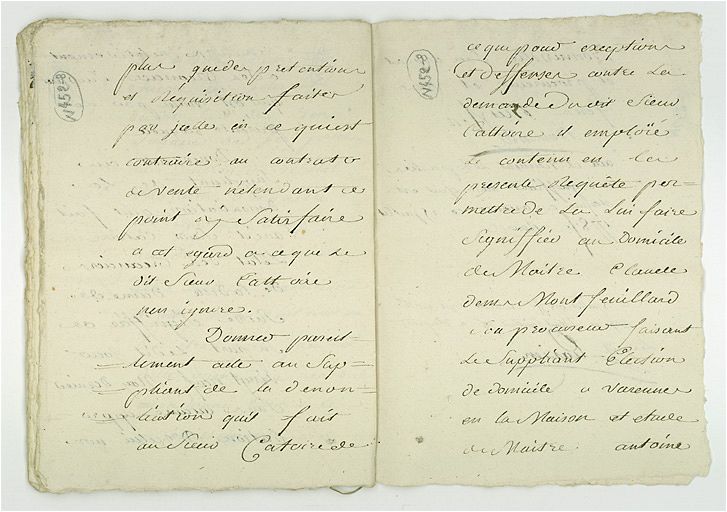 N452-8
plus que des pretentions
et Requisition faites
par jude en ce qui est
contraire au contrat
de vente nétendant ce
point Satisfaire
a cet egard a ce que Le
dit Sieur Cattoire
n'en ignore.
Donner pareil=
=lement acte au Sup=
=pliant de la denon=
=ciation qu'il fait
au Sieur Catoire de
N452-8
ce qui pour exceptions
et deffenses contre La
demande Dudit Sieur
Cattoire il employe
Le contenu en la
presente Requête per=
mettre de La lui faire
Signiffiée au Domicile
de Maitre Claude
Montfeuillard
Son procureur faisant
Le Suppliant Election
de domicile a Varennes
en La Maison et etude
de Maitre antoine